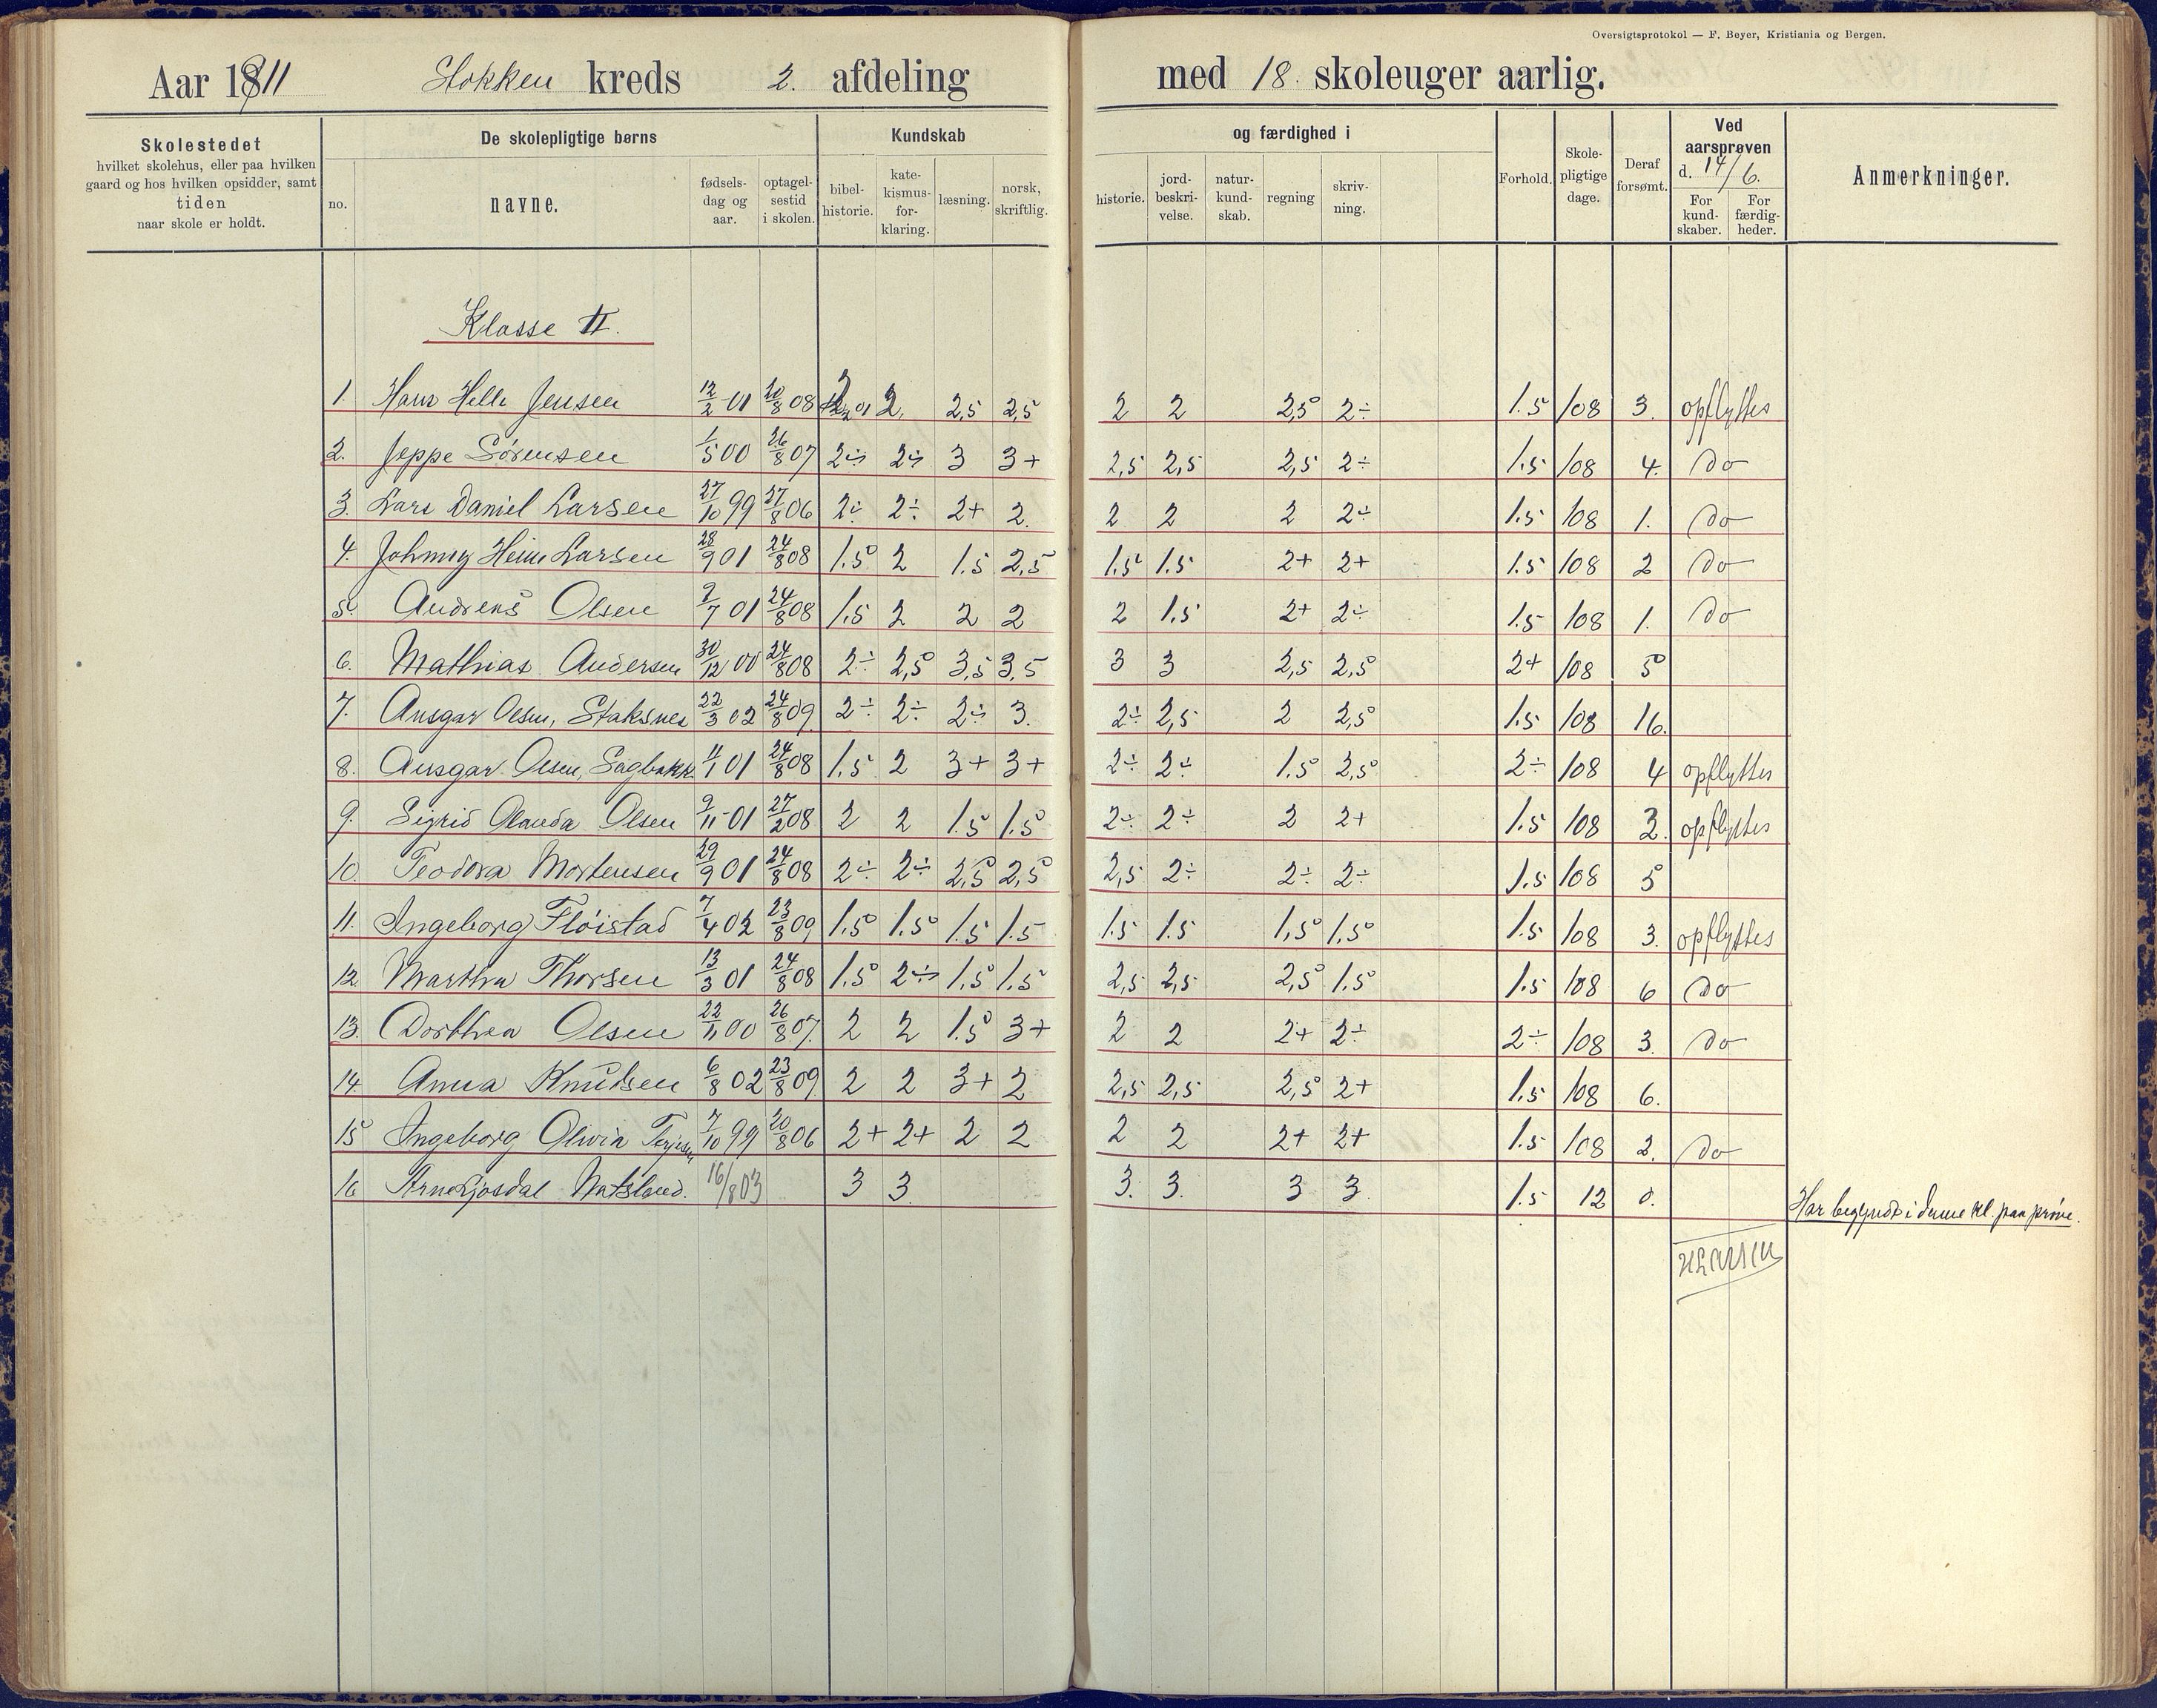 Oversigtsprotokol — F. Beyer, Kristiania og Bergen.
Aar 1911 Stokken kreds 2. afdeling med 18. skoleuger aarlig.
Skolestedet
hvilket skolehus, eller paa hvilken
gaard og hos hvilken opsidder, samt
tiden
naar skole er holdt.
De skolepligtige børns
no.
navne.
fødsels-
dag og
aar.
optagel-
sestid
i skolen.
Kundskab
bibel-
historie.
kate-
kismus-
for-
klaring.
læsning.
norsk,
skriftlig.
og færdighed i
historie.
jord-
beskri-
velse.
natur-
kund-
skab.
regning
skriv-
ning.
Forhold.
Skole-
pligtige
dage.
Deraf
forsømt.
Ved
aarsprøven
d. 14/6.
For
kund-
skaber.
For
færdig-
heder.
Anmerkninger.
Klasse II.
1. Hans Helle Jensen 12/2 01 20/8 08 2 2. 2,5 2,5 2 2 2,5 2÷ 1.5 108 3. opflyttes
2. Jeppe Sörensen 1/5 00 26/8 07 2÷ 2÷ 3 3+ 2,5 2,5 2,5 2÷ 1.5 108 4. do
3. Lars Daniel Larsen 27/10 99 27/8 06 2÷ 2÷ 2+ 2. 2 2 2 2÷ 1.5 108 1. do
4. Johnny Heim Larsen 28/9 01 24/8 08 1.5 2 1.5 2,5 1.5 1.5 2+ 2+ 1.5 108 2 do
5. Andreas Olsen 2/7 01 24/8 08 1.5 2 2 2 2 1.5 2+ 2÷ 1.5 108 1. do
6. Mathias Andersen 30/12 00 24/8 08 2÷ 2,5 3,5 3,5 3 3 2,5 2,5 2+ 108 5
7. Ansgar Olsen, Staksnes 22/3 02 24/8 09. 2÷ 2÷ 2÷ 3. 2÷ 2,5 2 2,5 1.5 108 16.
8. Ansgar Olsen, Sagbakk. 11/1 01 24/8 08 1.5 2 3+ 3+ 2÷ 2÷ 1.5 2,5 2÷ 108 4 opflyttes
9. Sigrid Olauda Olsen 9/11 01 27/2 08 2 2 1.5 1.5 2÷ 2÷ 2 2+ 1.5 108 2. opflyttes
10. Teodora Mortensen 29/9 01 24/8 08 2÷ 2÷ 2,5 2,5 2,5 2÷ 2÷ 2÷ 1.5 108 5
11. Ingeborg Flöistad 7/4 02 23/8 09 1.5 1.5 1.5 1.5 1.5 1.5 1,5 1,5 1.5 108 3. opflyttes
12 Martha Thorsen 13/3 01 24/8 08 1.5 2÷ 1.5 1.5 2,5 2,5 2,5 1.5 1.5 108 6 do
13. Dorthea Olsen 22/11 00 26/8 07. 2 2 1.5 3+ 2 2 2+ 2÷ 2÷ 108 3. do
14 Anna Knudsen 6/8 02 23/8 09. 2 2 3+ 2 2,5 2,5 2,5 2+ 1.5 108 6.
15 Ingeborg Olivia Terjesen 7/10 99 20/8 06 2+ 2+ 2 2 2 2 2+ 2+ 1.5 108 2. do
16 Arne 16/8 03 3 3 3. 3. 3 3 1.5 12 0. Har begyndt i denne kl. paa pröve.
HLarsen